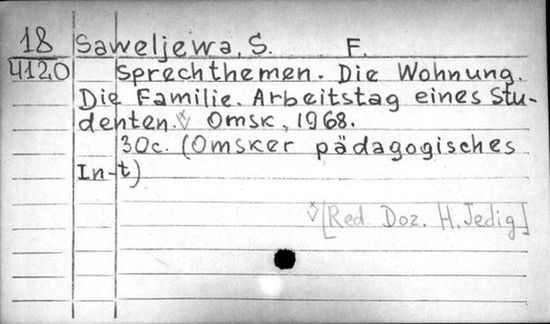 18 Saweljewa, S. F.
4120 Sprechthemen. Die Wohnung.
Die Familie. Arbeitstag eines Stu-
denten. Omsk, 1968.
30c. (Omsker pädagogisches
In-t)
[Red. Doz. H. Jedig]